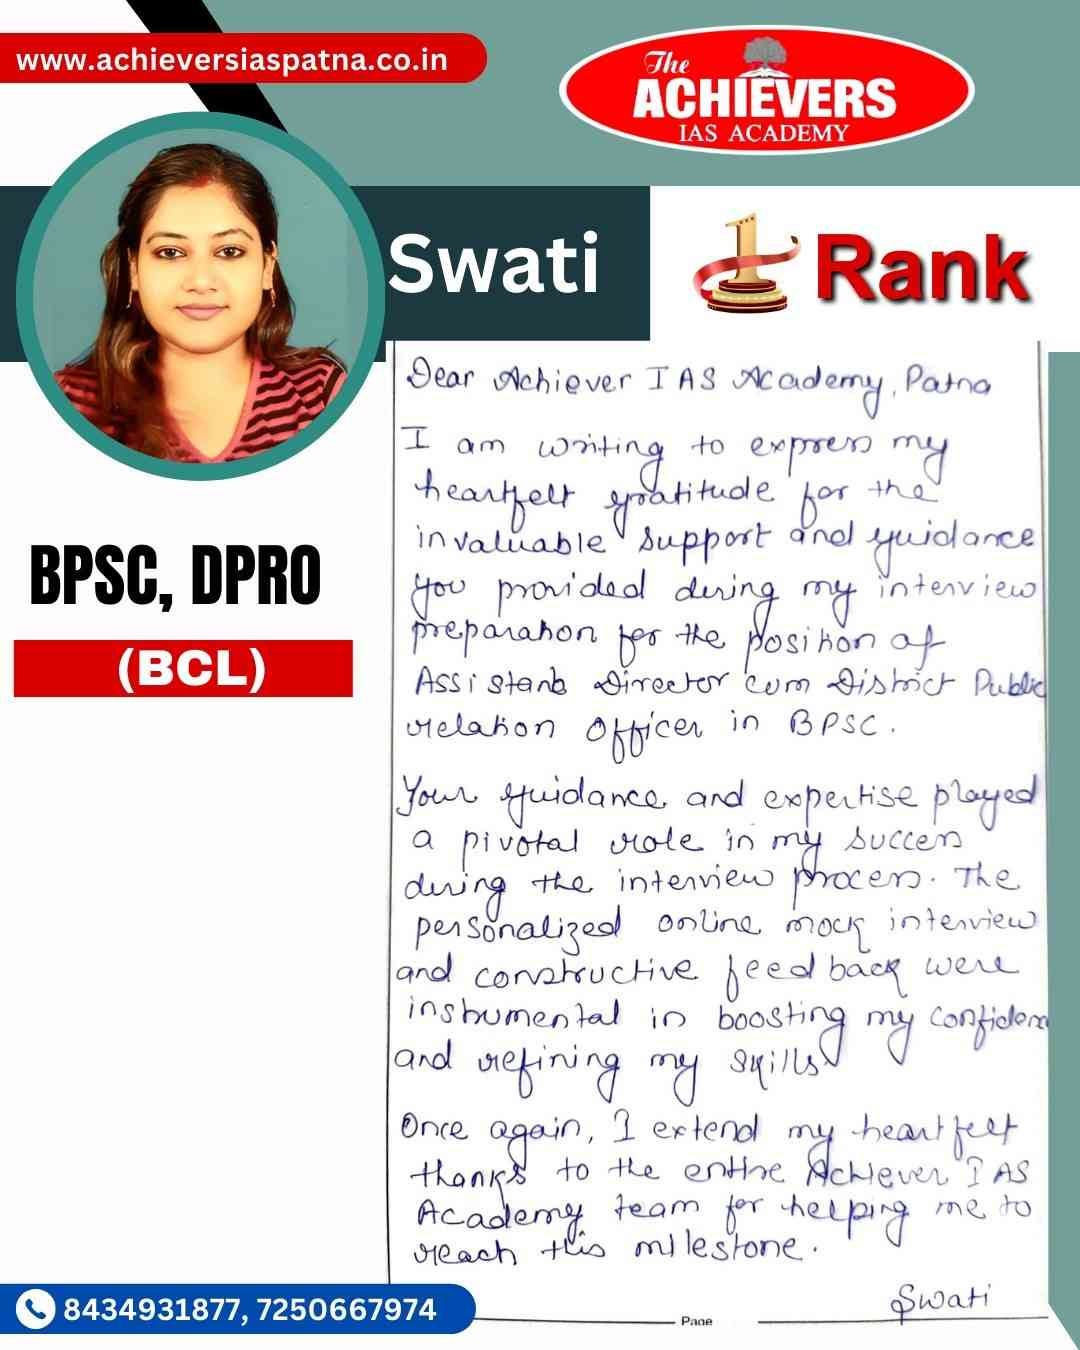 www.achieversiaspatna.co.in
The
ACHIEVERS
IAS ACADEMY
Swati
1 Rank
BPSC, DPRO
(BCL)
Dear Achiever IAS Academy, Patna
I am writing to express my
heartfelt gratitude for the
invaluable support and guidance
you provided during my interview
preparation for the position of
Assistant Director cum District Public
relation Officer in BPSC.
Your guidance and expertise played
a pivotal role in my success
during the interview process. The
personalized online mock interview
and constructive feedback were
instrumental in boosting my confidence
and refining my skills
Once again, I extend my heartfelt
thanks to the entire Achiever IAS
Academy team for helping me to
reach this milestone.
Swati
Page
8434931877, 7250667974